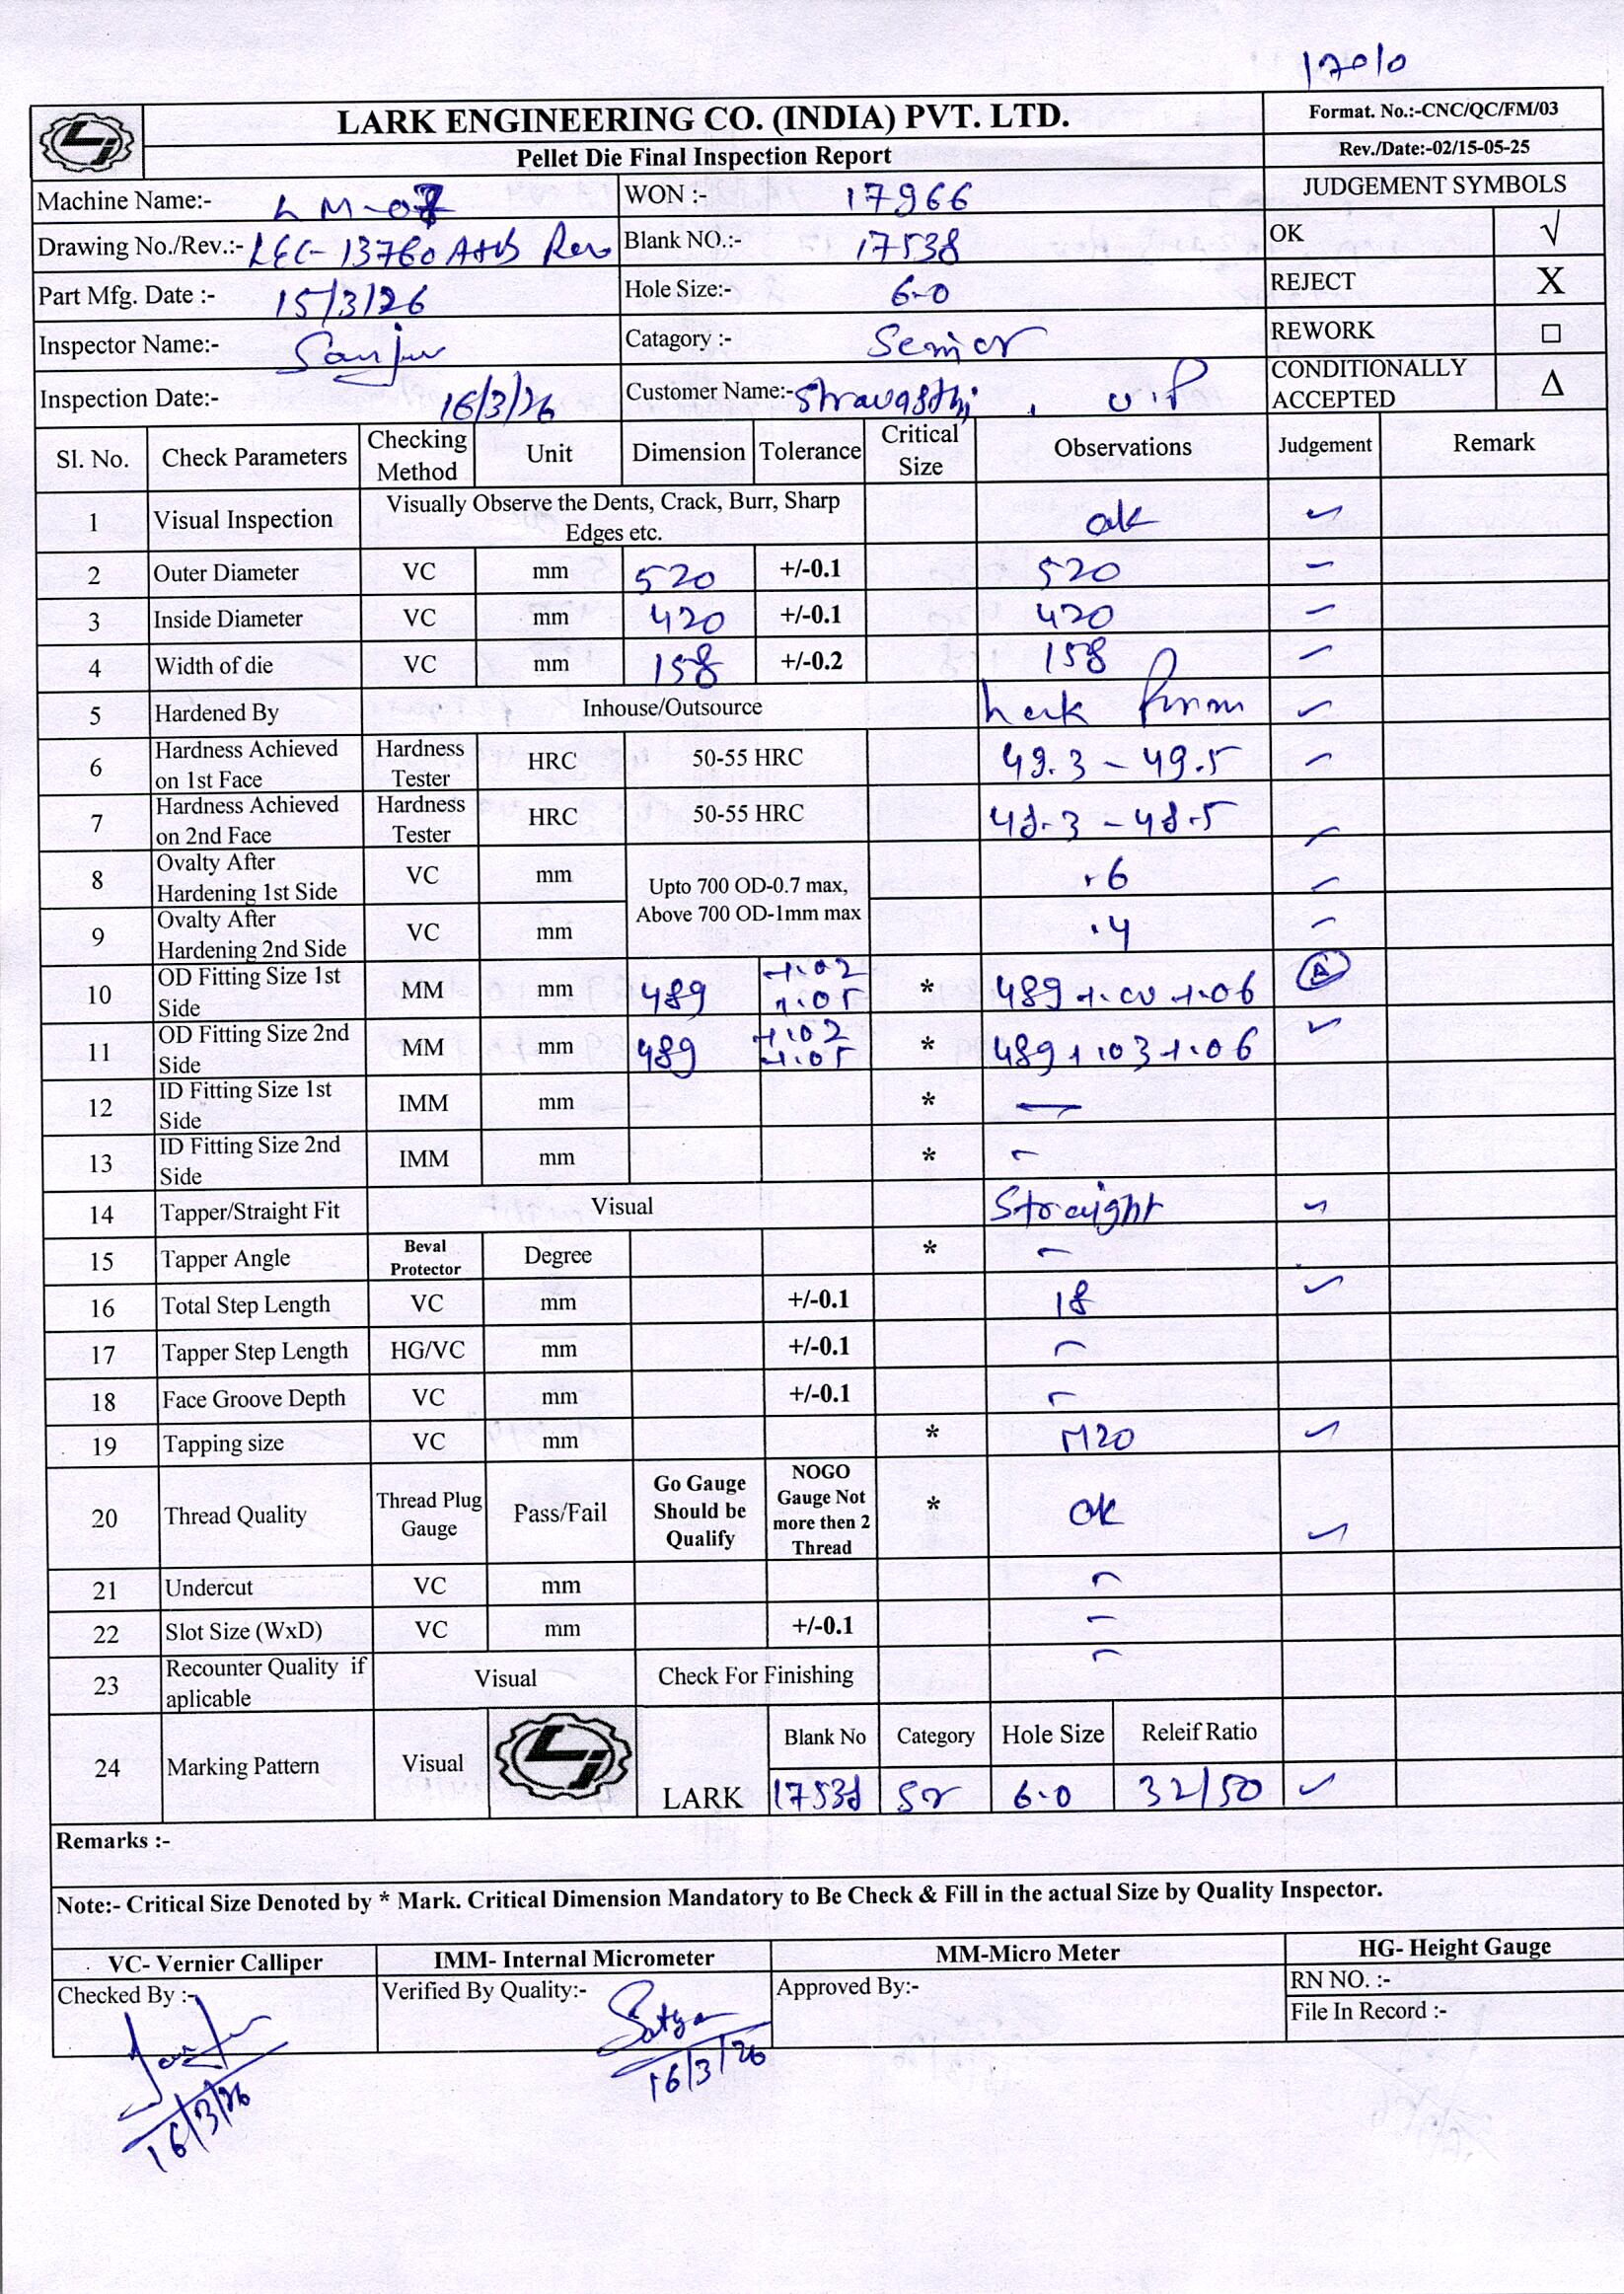 17010
LARK ENGINEERING CO. (INDIA) PVT. LTD.
Pellet Die Final Inspection Report
Format. No.:-CNC/QC/FM/03
Rev./Date:-02/15-05-25
Machine Name:- LM-07 WON :- 17966 JUDGEMENT SYMBOLS
Drawing No./Rev.:- LEC-13760 A+B Rev Blank NO.:- 17538 OK √
Part Mfg. Date :- 15/3/26 Hole Size:- 6.0 REJECT X
Inspector Name:- Sanju Catagory :- Senior REWORK □
Inspection Date:- 16/3/26 Customer Name:- Shravasthi, U.P CONDITIONALLY ACCEPTED Δ
Sl. No. Check Parameters Checking Method Unit Dimension Tolerance Critical Size Observations Judgement Remark
1 Visual Inspection Visually Observe the Dents, Crack, Burr, Sharp Edges etc. ok ✓
2 Outer Diameter VC mm 520 +/-0.1 520 ✓
3 Inside Diameter VC mm 420 +/-0.1 420 ✓
4 Width of die VC mm 158 +/-0.2 158 ✓
5 Hardened By Inhouse/Outsource ✓
6 Hardness Achieved on 1st Face Hardness Tester HRC 50-55 HRC 49.3 - 49.5 ✓
7 Hardness Achieved on 2nd Face Hardness Tester HRC 50-55 HRC 48.3 - 48.5 ✓
8 Ovalty After Hardening 1st Side VC mm Upto 700 OD-0.7 max, Above 700 OD-1mm max .6 ✓
9 Ovalty After Hardening 2nd Side VC mm .4 ✓
10 OD Fitting Size 1st Side MM mm 489 +.02 +.05 * 489 +.00 +.06
11 OD Fitting Size 2nd Side MM mm 489 +.02 +.05 * 489 +.03 +.06 ✓
12 ID Fitting Size 1st Side IMM mm * —
13 ID Fitting Size 2nd Side IMM mm * -
14 Tapper/Straight Fit Visual Straight ✓
15 Tapper Angle Beval Protector Degree * -
16 Total Step Length VC mm +/-0.1 18 ✓
17 Tapper Step Length HG/VC mm +/-0.1 -
18 Face Groove Depth VC mm +/-0.1 -
19 Tapping size VC mm * M20 ✓
20 Thread Quality Thread Plug Gauge Pass/Fail Go Gauge Should be Qualify NOGO Gauge Not more then 2 Thread * ok ✓
21 Undercut VC mm -
22 Slot Size (WxD) VC mm +/-0.1 -
23 Recounter Quality if aplicable Visual Check For Finishing -
24 Marking Pattern Visual LARK Blank No Category Hole Size Releif Ratio
17538 Sr 6.0 32/50 ✓
Remarks :-
Note:- Critical Size Denoted by * Mark. Critical Dimension Mandatory to Be Check & Fill in the actual Size by Quality Inspector.
VC- Vernier Calliper IMM- Internal Micrometer MM-Micro Meter HG- Height Gauge
Checked By :- Verified By Quality:- Satya Approved By:- RN NO. :-
File In Record :-
16/3/26 16/3/26